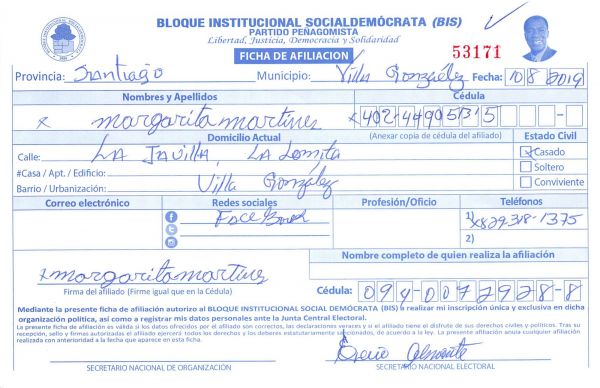 BLOQUE INSTITUCIONAL SOCIALDEMÓCRATA (BIS)
PARTIDO PEÑAGOMISTA
Libertad, Justicia, Democracia y Solidaridad
FICHA DE AFILIACION
53171
Provincia: Santiago Municipio: Villa González Fecha: 10 8 2019
Nombres y Apellidos Cédula
x margarita martines x 402-4490531 5
Domicilio Actual (Anexar copia de cédula del afiliado) Estado Civil
Calle: LA JAVILLA, LA Lomita Casado
#Casa / Apt. / Edificio: Soltero
Barrio / Urbanización: Villa González Conviviente
Correo electrónico Redes sociales Profesión/Oficio Teléfonos
FaceBook 1) x829-318-1375
2)
Nombre completo de quien realiza la afiliación
x margarita martines
Firma del afiliado (Firme igual que en la Cédula) Cédula: 094-0072928-8
Mediante la presente ficha de afiliación autorizo al BLOQUE INSTITUCIONAL SOCIAL DEMÓCRATA (BIS) a realizar mi inscripción única y exclusiva en dicha
organización política, así como a registrar mis datos personales ante la Junta Central Electoral.
La presente ficha de afiliación es válida si los datos ofrecidos por el afiliado son correctos, las declaraciones veraces y si el afiliado tiene el disfrute de sus derechos civiles y políticos. Tras su
recepción, sello y firmas autorizadas el afiliado ejercerá todos los derechos y los deberes estatutariamente sancionados, de acuerdo a la ley. La presente afiliación anula cualquier afiliación
realizada con anterioridad a la fecha que aparece en esta ficha.
SECRETARIO NACIONAL DE ORGANIZACIÓN SECRETARIO NACIONAL ELECTORAL